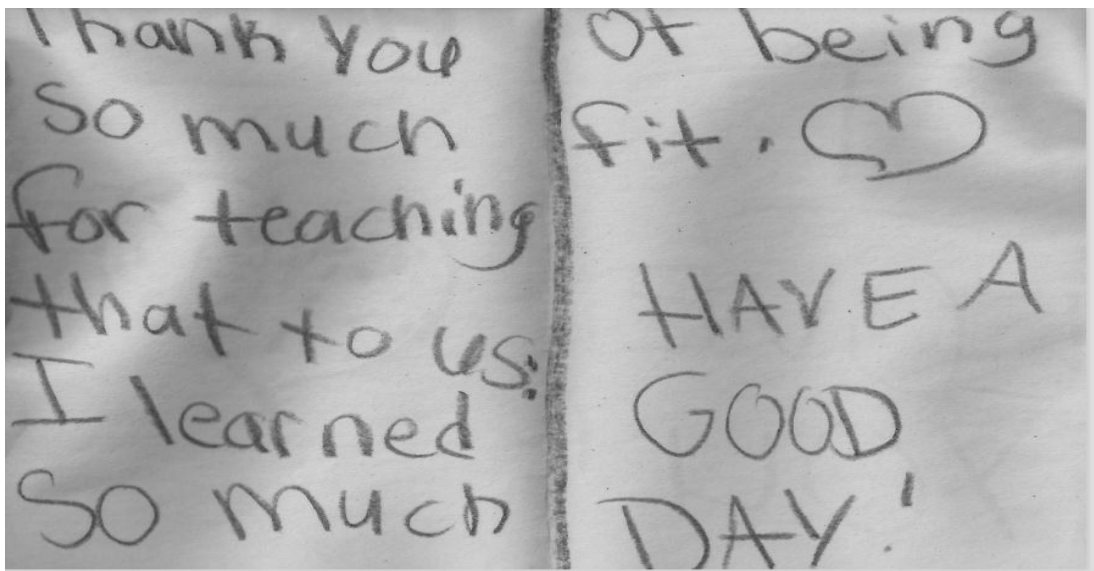 Thank you
So much
for teaching
that to us.
I learned
So much
Of being
fit.
HAVE A
GOOD
DAY!